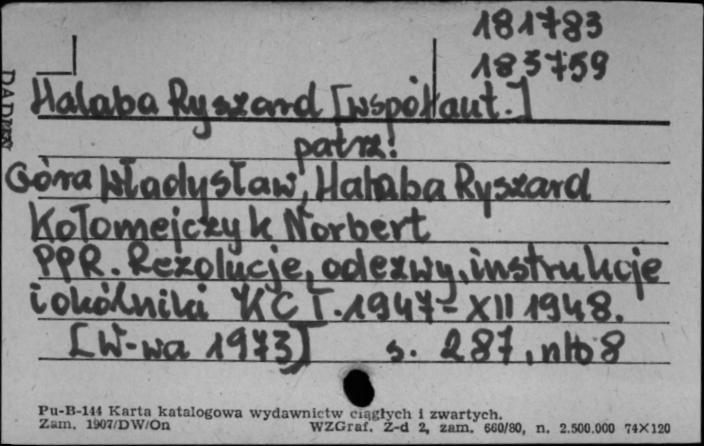 181783
183759
Halaba Ryszard [współaut.]
patrz!
Góra Władysław, Halaba Ryszard
Kołomejczyk Norbert
PPR. Rezolucje, odezwy, instrukcje
i okólniki KC I.1947-XII 1948.
[W-wa 1973] s. 287, nlb 8
Pu-B-144 Karta katalogowa wydawnictw ciągłych i zwartych.
Zam. 1907/DW/On WZGraf. Z-d 2, zam. 660/80, n. 2.500.000 74×120